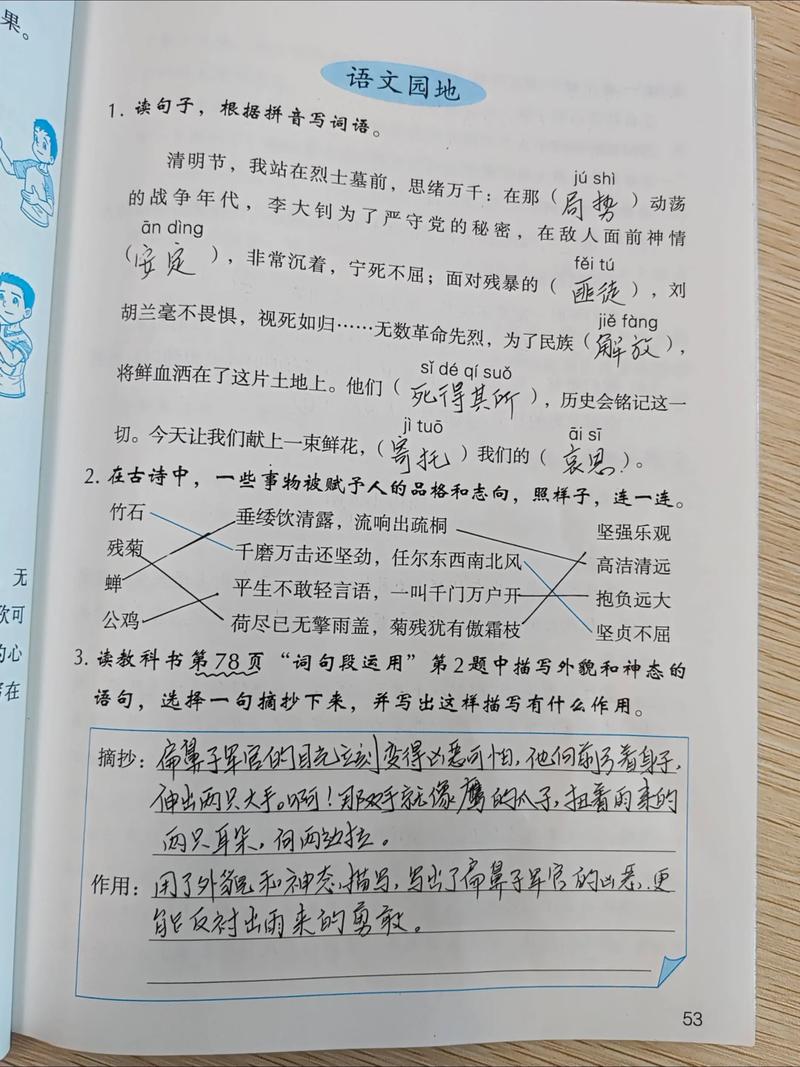 果。
语文园地
1. 读句子，根据拼音写词语。
jú shì
清明节，我站在烈士墓前，思绪万千：在那（局势）动荡
的战争年代，李大钊为了严守党的秘密，在敌人面前神情
ān dìng
fěi tú
（安定），非常沉着，宁死不屈；面对残暴的（匪徒），刘
jiě fàng
胡兰毫不畏惧，视死如归……无数革命先烈，为了民族（解放），
sǐ dé qí suǒ
将鲜血洒在了这片土地上。他们（死得其所），历史会铭记这一
jì tuō
āi sī
切。今天让我们献上一束鲜花，（寄托）我们的（哀思）。
2. 在古诗中，一些事物被赋予人的品格和志向，照样子，连一连。
竹石 垂緌饮清露，流响出疏桐 坚强乐观
残菊 千磨万击还坚劲，任尔东西南北风 高洁清远
蝉 平生不敢轻言语，一叫千门万户开 抱负远大
公鸡 荷尽已无擎雨盖，菊残犹有傲霜枝 坚贞不屈
3. 读教科书第78页“词句段运用”第2题中描写外貌和神态的
语句，选择一句摘抄下来，并写出这样描写有什么作用。
摘抄：扁鼻子军官的目光立刻变得凶恶可怕，他向前弓着身子，
伸出两只大手。啊！那双手就像鹰的爪子，扭着雨来的
两只耳朵，向两边拉。
作用：用了外貌和神态描写，写出了扁鼻子军官的凶恶，更
能反衬出雨来的勇敢。
无
欠可
的心
写在
53